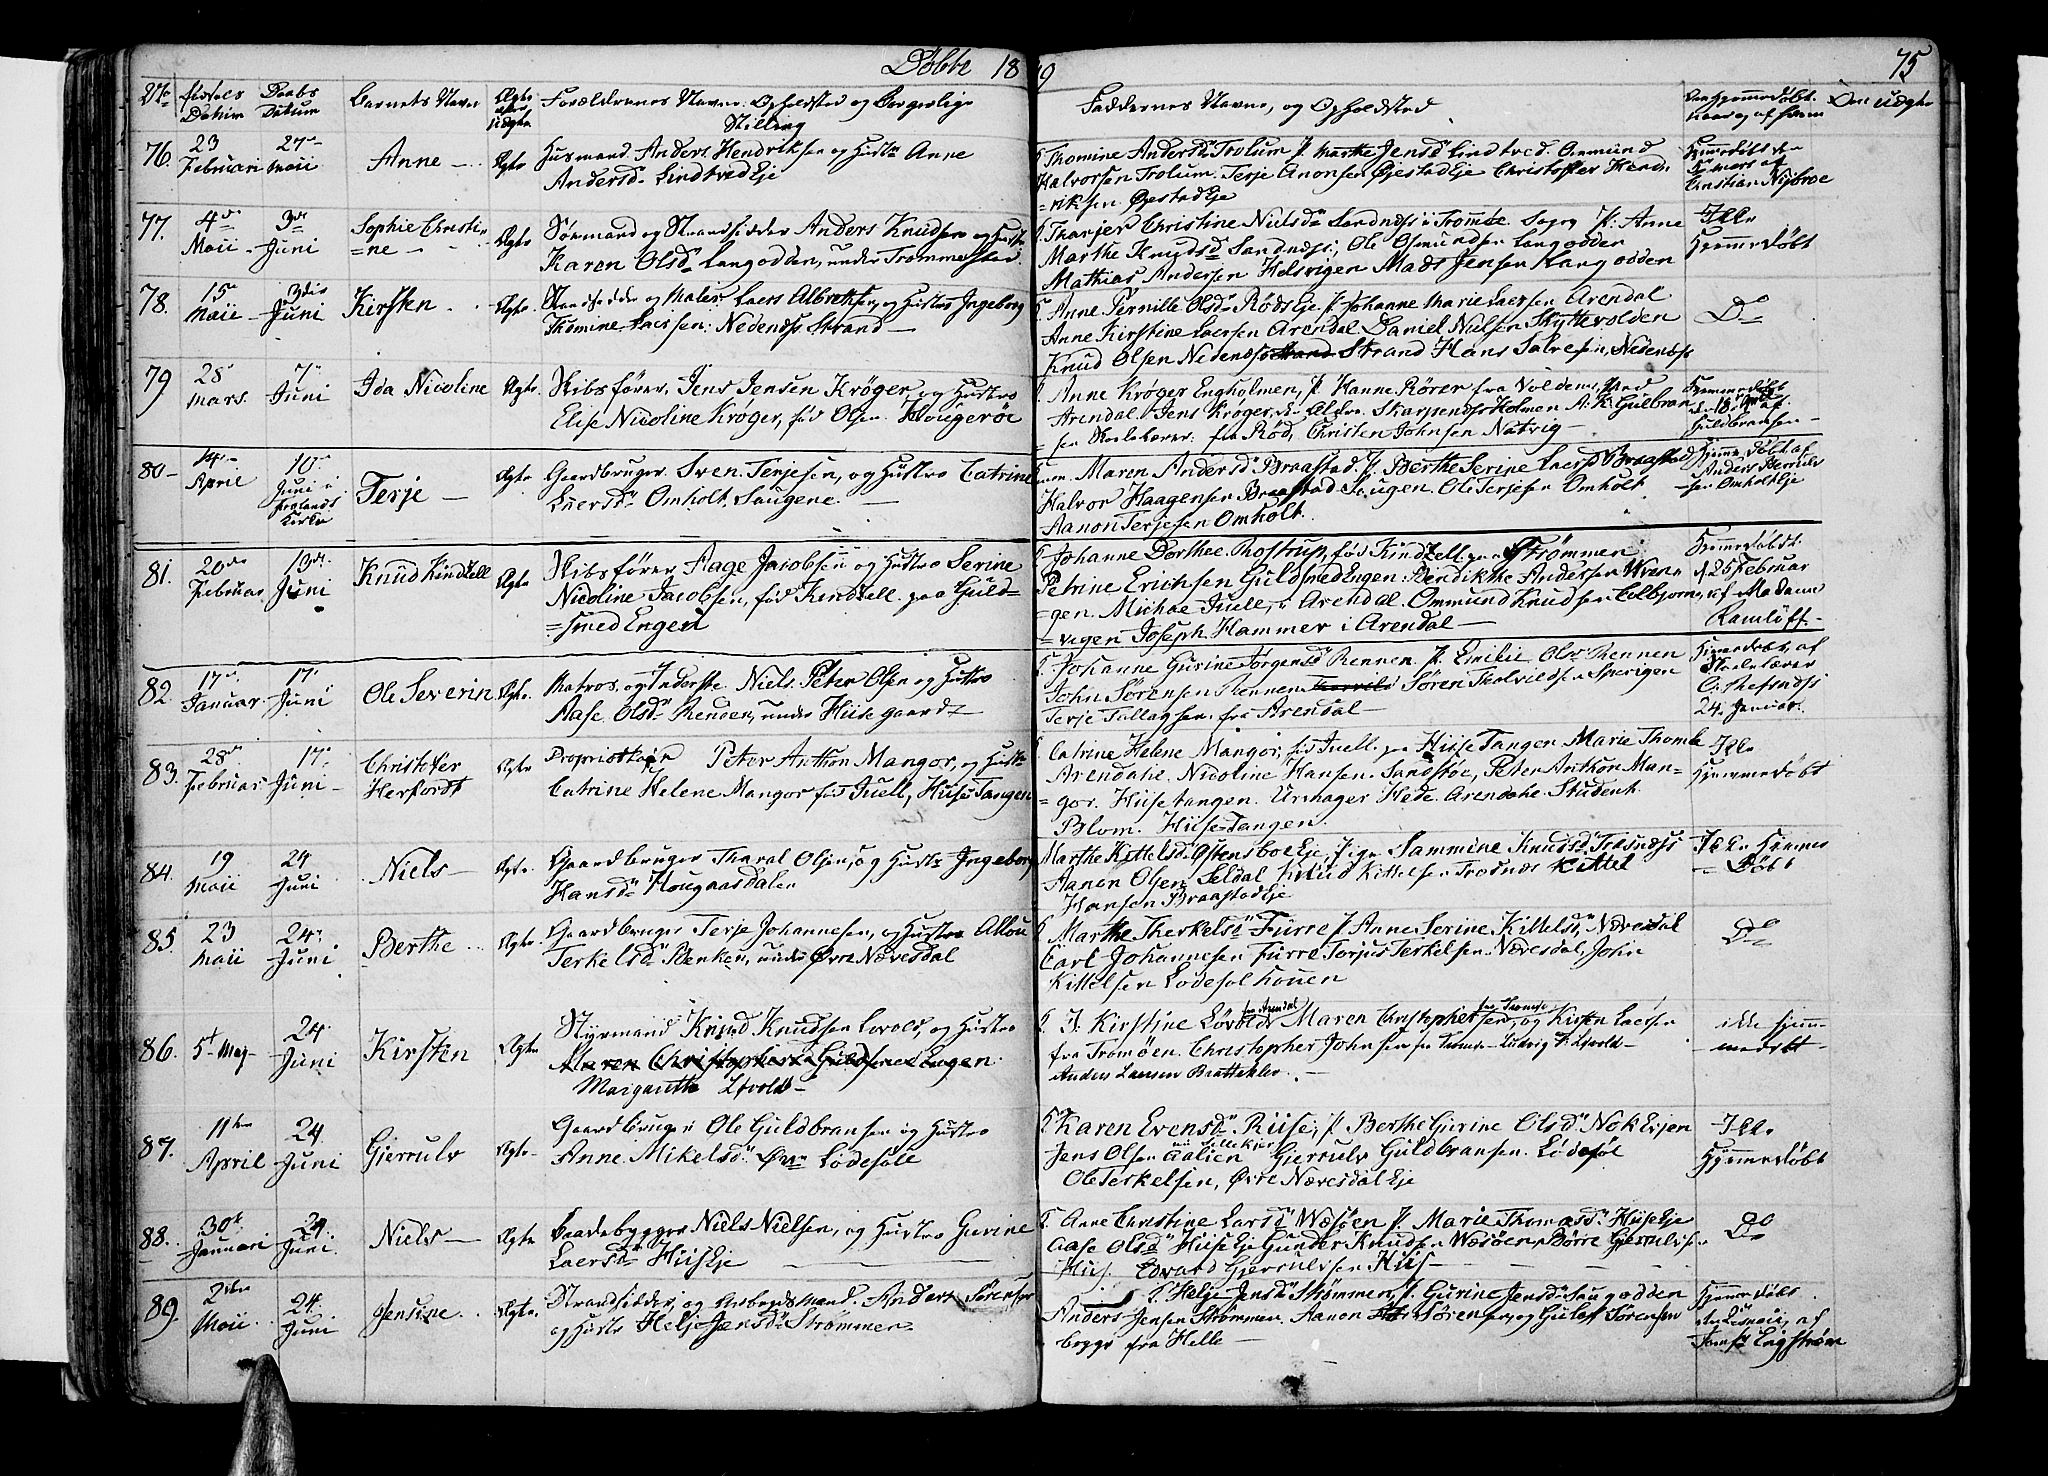 Døbte 18 9
75
No Fødsels Datum Daabs Datum Barnets Navn Ægte eller Uægte Forældrenes Navne. Opholdsted og Borgerlige Stilling Faddernes Navne, og Opholdsted
76. 23 Februari 27de Maii Anne Ægte Husmand Anders Hendriksen og Hustr Anne
Andersd. LindtvedEje
Thomine Andersd. Trolum P. Marthe Jensd Lindtved. Ommund
Halvorsen Trolum. Terje Anonsen ØjestadEje Christoffer Hend
=riksen ØjestadEje
77. 4de Maii 3de Juni Sophie Christi=ne Ægte Sømand og Strandsidder Anders Knudsen og Hustr
Karen Olsd Langodden, under Trommestad
Tharjer Christine Nielsd Sandnæs i Tromøe Sogn P. Anne
Marthe Knudsd Sandnæs; Ole Osmundsen Langodden
Mathias Andersen Helvigen Mads Jensen Langodden
Ikke Hjemmedøbt
78. 15de Maii 3die Juni Kirsten Ægte Strandsidder og Maler Laers Albretsen og Hustro Ingeborg
Thomine Laersen: Nedenæs Strand
Anne Pernille Olsd RødsEje P. Johanne Marie Laersen Arendal
Anne Kirstine Laersen Arendal. Daniel Nielsen Skyttevolden
Knud Olsen Nedenæs Strand Hans Salvesen, Nedenæs
Do
79 28 Mars. 7de Juni Ida Nicoline Ægte Skibsfører, Jens Jensen Krøger, og Hustro
Elise Nicoline Krøger, fød Olsen. Hougerøe
Anne Krøger Engholmen, P. Hanne Rører fra Volden, ved
Arendal Jens Krøger Holmen A. K. Gulbran
sen Skolelærer fra Rød, Christen Johnsen Natvig
80 14 April 10de Juni i Frolands Kirke Terje Ægte Gaardbruger Sven Terjesen, og Hustro Catrine
Laersd Omholt, Saugene
Maren Andersd Braastad. P. Berthe Serine Laersd Braastad
Halvor Haagensen Braastad Saugen. Ole Terjesen Omholt
Aanon Terjesen Omholt
Hjemmedøbt af Anders sen OmholtEje
81. 20de Februar 10de Juni Knud Kindtzell Ægte Skibsfører Aage Jacobsen og Hustro Serine
Nicoline Jacobsen, fød Kindtzell paa Guld=
=smedEngen
Johanne Dorthee Rostrup, fød Kindtzell paa Strømmen
Petrine Erichsen GuldsmedEngen. Bendikthe Andersen Vren
=gen. Michae Juell, i Arendal. Ommund Knudsen Colbjørns
=vigen Joseph Hammer i Arendal
Hjemmedøbt d. 25 Februar af Madame Ramløff
82. 17de Januar 17de Juni Ole Severin Ægte Matros og Inderste Niels Peter Olsen og Hustro
Aase Olsd Rennen, under Hiisegaard
Johanne Gurine Jørgensd Rennen. P. Emilie Olsd Rennen
John Sørensen Rennen Søren Thalvildsen Sperigen
Terje Tallagsen fra Arendal
Hjemmedøbt, af Skolelærer C: Refsnæs 24. Januar.
83. 28de Februar 17de Juni Christofer Herfordt Ægte Proprietær Peter Anthon Mangor, og Hustr
Catrine Helene Mangor fød Juell, HiiseTangen
Catrine Helene Mangor, fød Juell. paa HiiseTangen Marie Thomle
Arendahl. Nicoline Hansen Sandstøe, Peter Anthon Man=
=gor. Hiisetangen. Urmager Hede. Arendahl. Student
Blom. HiiseTangen.
Ikke Hjemmedøbt
84. 19 Maii 24 Juni Niels Ægte Gaardbruger Tharal Olsen, og Hustr Ingeborg
Hansd Hougaasdalen
Marthe Kittelsd OstensboeEje, Pige Sammine Knudsd Trosnæs
Aanen Olsen Seldal Knud Kittelsen Trosnæs Kittel
Hansen BraastadEje
Ikke Hjemme=Døbt
85 23 Maii 24de Juni Berthe Ægte Gaardbruger Terje Johannesen, og Hustro Allou
Terkelsd Benken, under Øvre Nævesdal
Marthe Therkelsd Furre P. Anne Serine Kittelsd, Nævesdal
Carl Johannesen Furre Torjus Terkelsen Nævesdal, John
Kittelsen Lødesøl
Do
86. 5t Maj 24 Juni Kirsten Ægte Styrmand Knud Knudsen Løvold, og Hustro
Maren Christophersd GuldsmedEngen.
Margarethe Løvold
I. Kirstine Løvold fra Arendal Maren Christophersen fra Tromøe, og Kirsten Laersen
fra Tromøen. Christopher Johnsen fra Tromøe Ludvig K. Løvold
Anders Laersen Bratteklev.
ikke hjemmedøbt
87. 11te April 24 Juni Gjerrulv Ægte Gaardbruger Ole Guldbransen og Hustro
Anne Mikelsd Øvre Lødesøll
Karen Evensd Riise, P. Berthe Gurine Olsd NokEjen
Jens Olsen Aalien Gjerrulv Guldbransen. Lødesøl
Ole Terkelsen, Øvre NævesdalEje
Ikke Hjemmedøbt
88. 30te Januari 24 Juni Niels Ægte Baadebygger Niels Nielsen, og Hustro Gurine
Laersd HiisEje
Anne Christine Larsd Wæsøen P. Marie Thomasd HiiseEje
Aase Olsd HiiseEje Gunder Knudsen Wæsøen, Børre Gjerrulvsen
Hiis. Edvard Gjerrulvsen Hiis
Do
89. 2den Maii 24 Juni Jensine Ægte Strandsidder, og Arbejdsmand. Anders Sørensen
og Hustr Helje Jensd Strømmen
Helje Jensd Strømmen, P. Gurine Jensd Saugodden
Anders Jensen Strømmen. Aanon Sørensen og Gulov Sørensen
begge fra Helle
Hjemmedøbt af Engstrøm